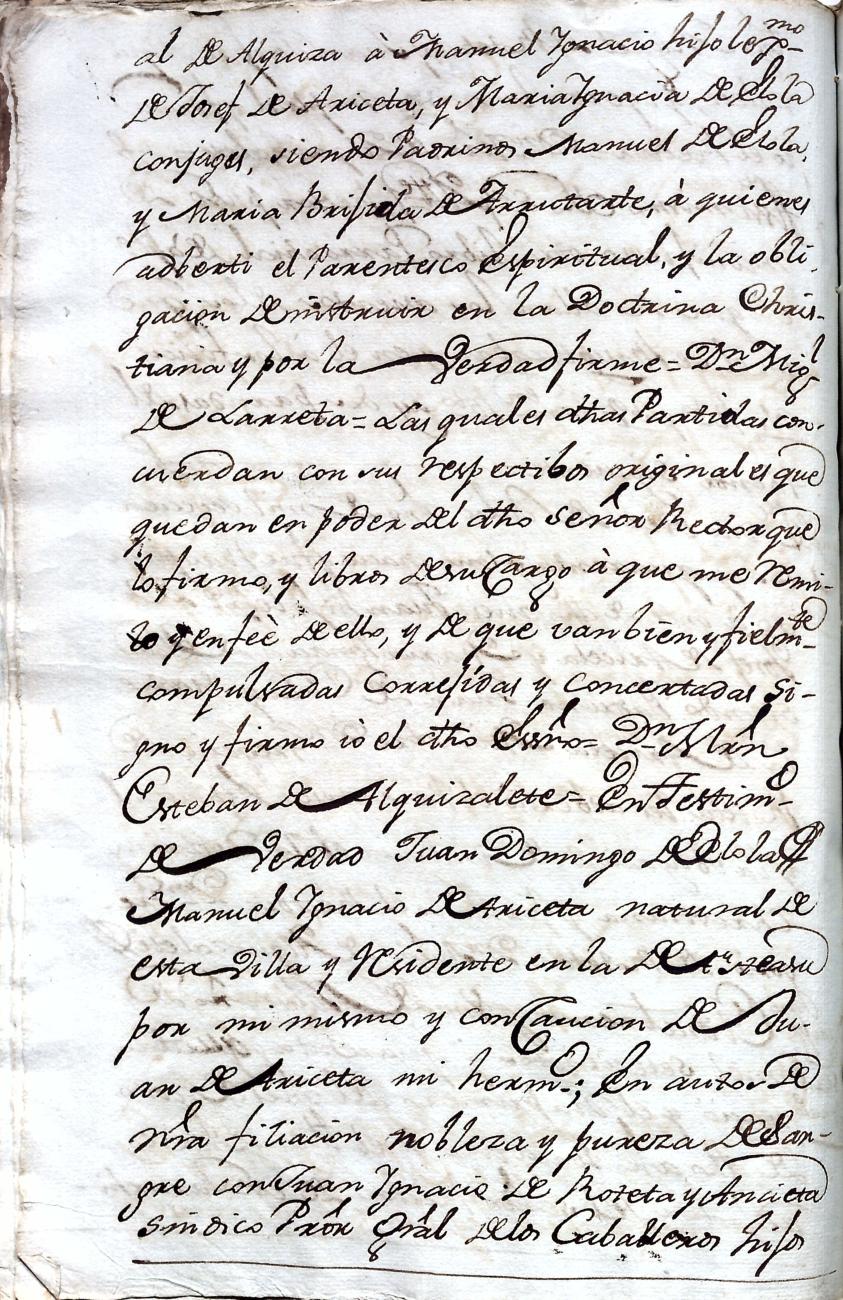 al de Alquiza à Manuel Ygnacio hijo lexmo
de Josef de Ariceta, y Maria Ygnacia de Elola
conjuges, siendo Padrinos Manuel de Elola,
y Maria Brisida de Arrutarte, à quienes
adberti el Parentesco Espiritual, y la obli-
gacion de instruir en la Doctrina Chris-
tiana y por la Verdad firme = Dn Migl
de Larreta = Las quales dthas Partidas con-
cuerdan con sus respectibos originales que
quedan en poder del dtho señor Rector que
lo firmo, y libros de su Cargo à que me remi-
to y en feè de ello, y de que van bien y fielmte
compulsadas Corresidas y Concertadas si-
gno y firmo io el dtho Essno = Dn Mrn
Esteban de Alquizalete = En Testimo
de Verdad Juan Domingo de Elola
Manuel Ygnacio de Ariceta natural de
esta Villa y residente en la de Asteasu
por mi mismo y con Caucion de Ju-
an de Ariceta mi hermo; En autos de
nra filiacion nobleza y pureza de San-
gre con Juan Ygnacio de Roteta y Ancieta
Sindico Pror Gral de los Caballeros hijos